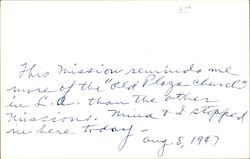 This Mission reminds me
more of the "Old Plaza Church"
in L.A. than the other
Missions. Mina & I stopped
in here today -
Aug. 8, 1947